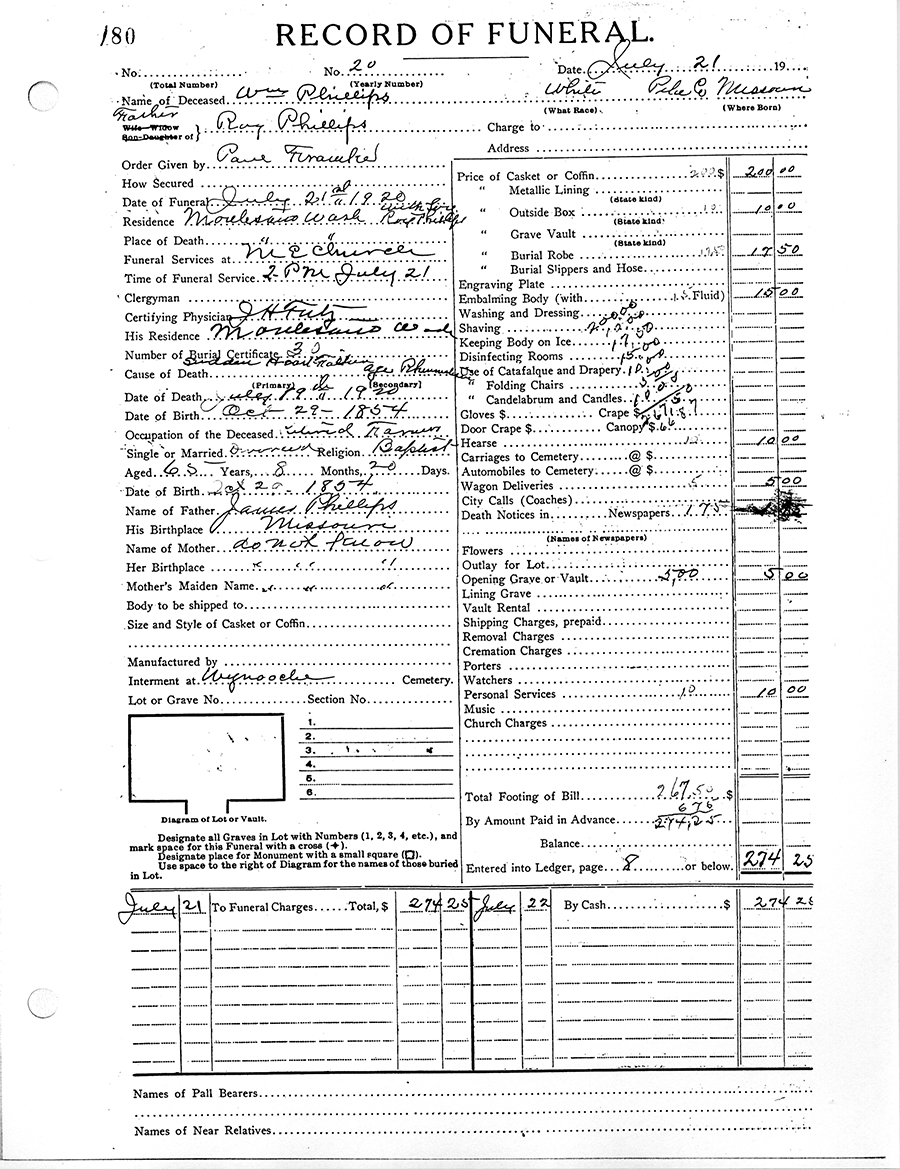 180
RECORD OF FUNERAL.
No. No. 20 Date July 21 19
(Total Number) (Yearly Number)
Name of Deceased Wm Phillips White Pike Co Missouri
(What Race) (Where Born)
Father
Wife-Widow
Son-Daughter of} Roy Phillips Charge to
Address
Order Given by
How Secured
Date of Funeral July 21st 1920
Residence Montesano Wash with Son Roy Phillips
Place of Death " "
Funeral Services at M E Church
Time of Funeral Service 2 PM July 21
Clergyman
Certifying Physician J H Fitz
His Residence Montesano Wash
Number of Burial Certificate 30
Cause of Death Sudden Heart
(Primary) (Secondary)
Date of Death July 19th 1920
Date of Birth Oct 29 - 1854
Occupation of the Deceased retired Farmer
Single or Married Religion Baptist
Aged 65 Years, 8 Months, 20 Days.
Date of Birth Oct 29 - 1854
Name of Father James Phillips
His Birthplace Missouri
Name of Mother do not know
Her Birthplace " " "
Mother's Maiden Name " " "
Body to be shipped to
Size and Style of Casket or Coffin
Manufactured by
Interment at Wynooche Cemetery.
Lot or Grave No. Section No.
1.
2.
3.
4.
5.
6.
Diagram of Lot or Vault.
Designate all Graves in Lot with Numbers (1, 2, 3, 4, etc.), and
mark space for this Funeral with a cross (+).
Designate place for Monument with a small square (□).
Use space to the right of Diagram for the names of those buried
in Lot.
Price of Casket or Coffin 200 $ 200 00
" Metallic Lining
(State kind)
" Outside Box 10 10 00
(State kind)
" Grave Vault
(State kind)
" Burial Robe 1750 17 50
" Burial Slippers and Hose
Engraving Plate
Embalming Body (with 15 Fluid) 15 00
Washing and Dressing
Shaving
Keeping Body on Ice
Disinfecting Rooms
Use of Catafalque and Drapery
" Folding Chairs
" Candelabrum and Candles
Gloves $ Crape $
Door Crape $ Canopy $
Hearse 10 10 00
Carriages to Cemetery @ $
Automobiles to Cemetery @ $
Wagon Deliveries 5 5 00
City Calls (Coaches)
Death Notices in Newspapers 175
(Names of Newspapers)
Flowers
Outlay for Lot
Opening Grave or Vault 5,00 5 00
Lining Grave
Vault Rental
Shipping Charges, prepaid
Removal Charges
Cremation Charges
Porters
Watchers
Personal Services 10 10 00
Music
Church Charges
Total Footing of Bill 267.50 $
675
By Amount Paid in Advance 274,25
Balance
Entered into Ledger, page 8 or below. 274 25
July 21 To Funeral Charges Total, $ 274 25 July 22 By Cash $ 274 25
Names of Pall Bearers
Names of Near Relatives